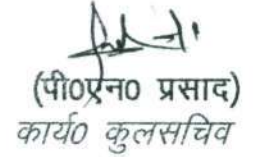 (पी०एन० प्रसाद)
कार्य० कुलसचिव